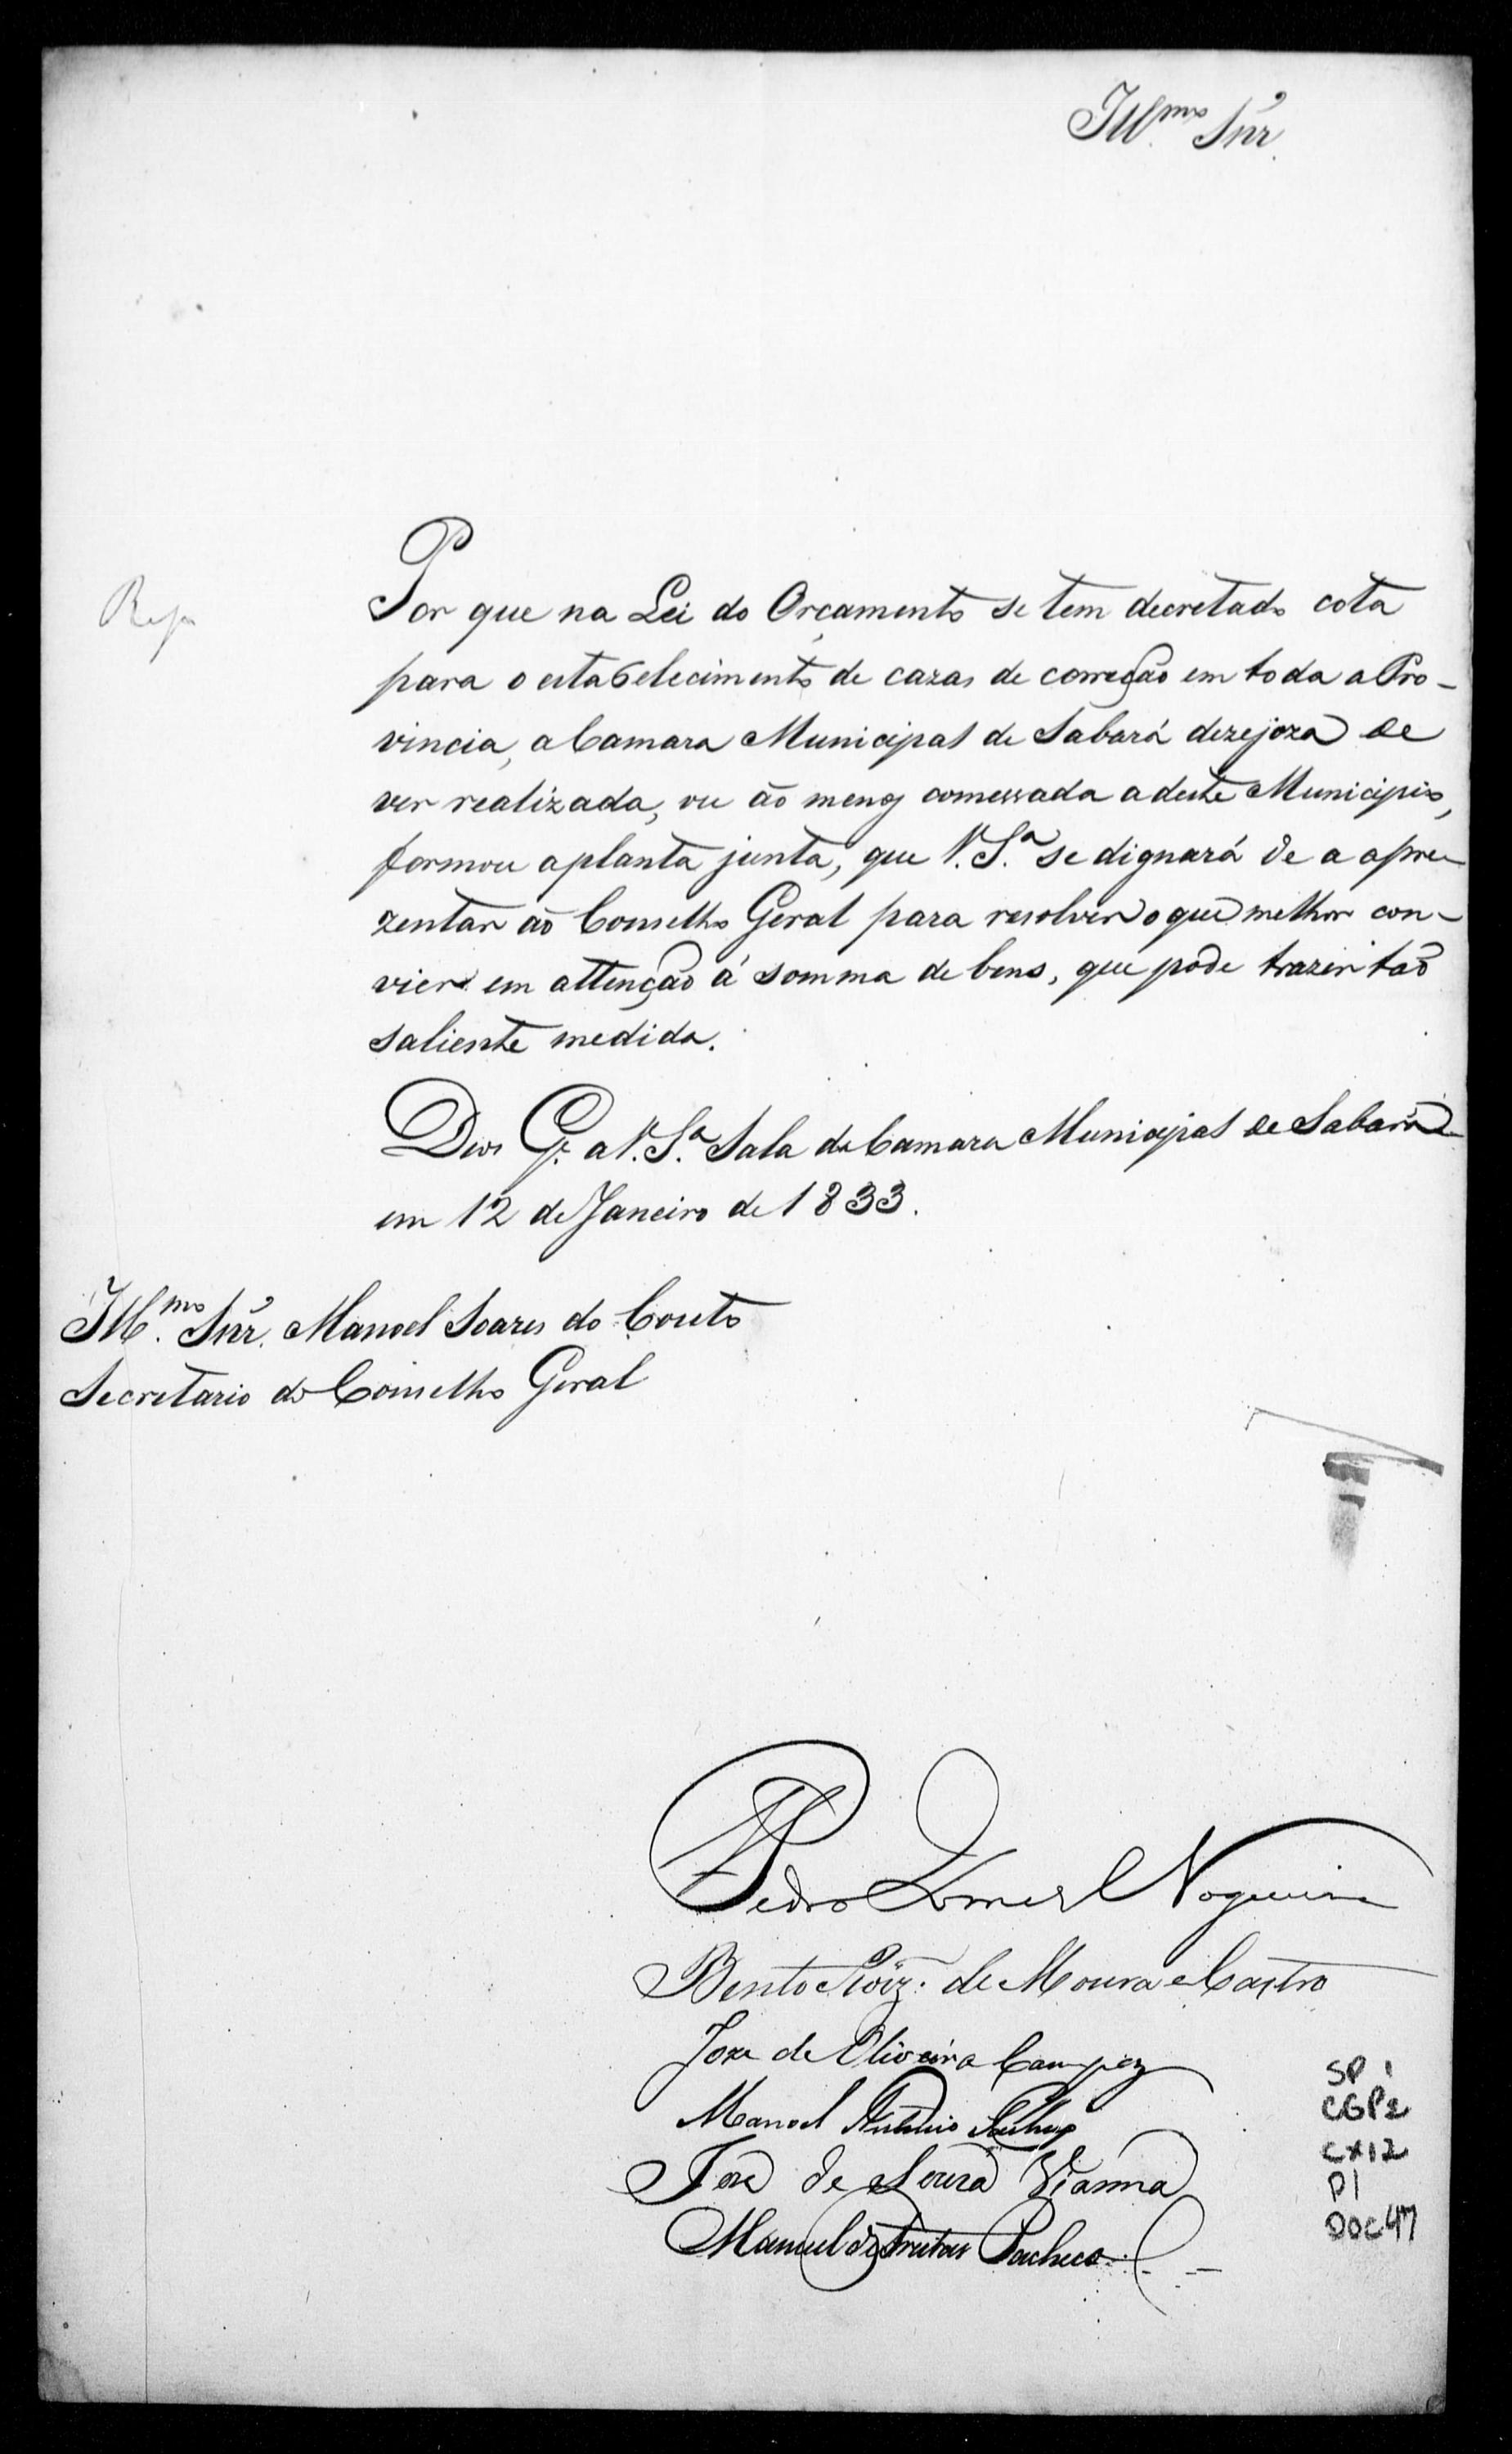 Ill.mo Snr.
Por que na Lei do Orçamento se tem decretado cota
para o estabelecimento de cazas de correção em toda a Pro-
vincia, a Camara Municipal de Sabará dezejoza de
ver realizada, ou ao menos comessada a deste Municipio,
formou a planta junta, que V. S.ª se dignará de a apre-
zentar ao Conselho Geral para resolver o que melhor con-
vier em attenção á somma de bens, que pode trazer tão
saliente medida.
Deos G.e a V. S.ª Sala da Camara Municipal de Sabará
em 12 de Janeiro de 1833.
Ill.mo Snr. Manoel Soares do Couto
Secretario do Conselho Geral
Pedro Gomes Nogueira
Bento Roiz. de Moura e Castro
Joze de Oliveira Campos
Manoel Antonio
Joze de Souza Vianna
Manuel de Freitas Pacheco
SP 1
CGP2
CX12
P1
DOC47